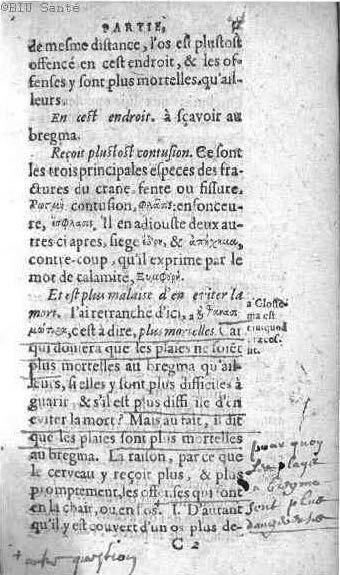 ©BIU Santé
PARTIE.
de mesme distance, l'os est plustost
offencé en cest endroit, & les of-
fenses y sont plus mortelles, qu'ail-
leurs.
En cest endroit. à sçavoir au
bregma.
Reçoit plustost contusion. Ce sont
les trois principales especes des fra-
ctures du crane, fente ou fissure,
contusion, enfonceu-
re, Il en adiouste deux au-
tres ci apres, siege & 
contre-coup, qu'il exprime par le
mot de calamité,
Et est plus malaisé d'en eviter la
mort. I'ai retranche d'ici,
c'est à dire, plus mortelles. Car
qui doutera que les plaies ne soiẽt
plus mortelles au bregma qu'ail-
leurs, si elles y sont plus difficiles à
guarir, & s'il est plus diffi ile d'en
eviter la mort? Mais au fait, il dit
que les plaies sont plus mortelles
au bregma. La raison, par ce que
le cerveau y reçoit plus, & plus
promptement, les offenses qui font
en la chair, ou en l'os. 1. D'autant
qu'il y est couvert d'un os plus de-
C 2
a Glosse-
ma est
pour quoy
la playe
a bregma
sont plus
dangereuse
question